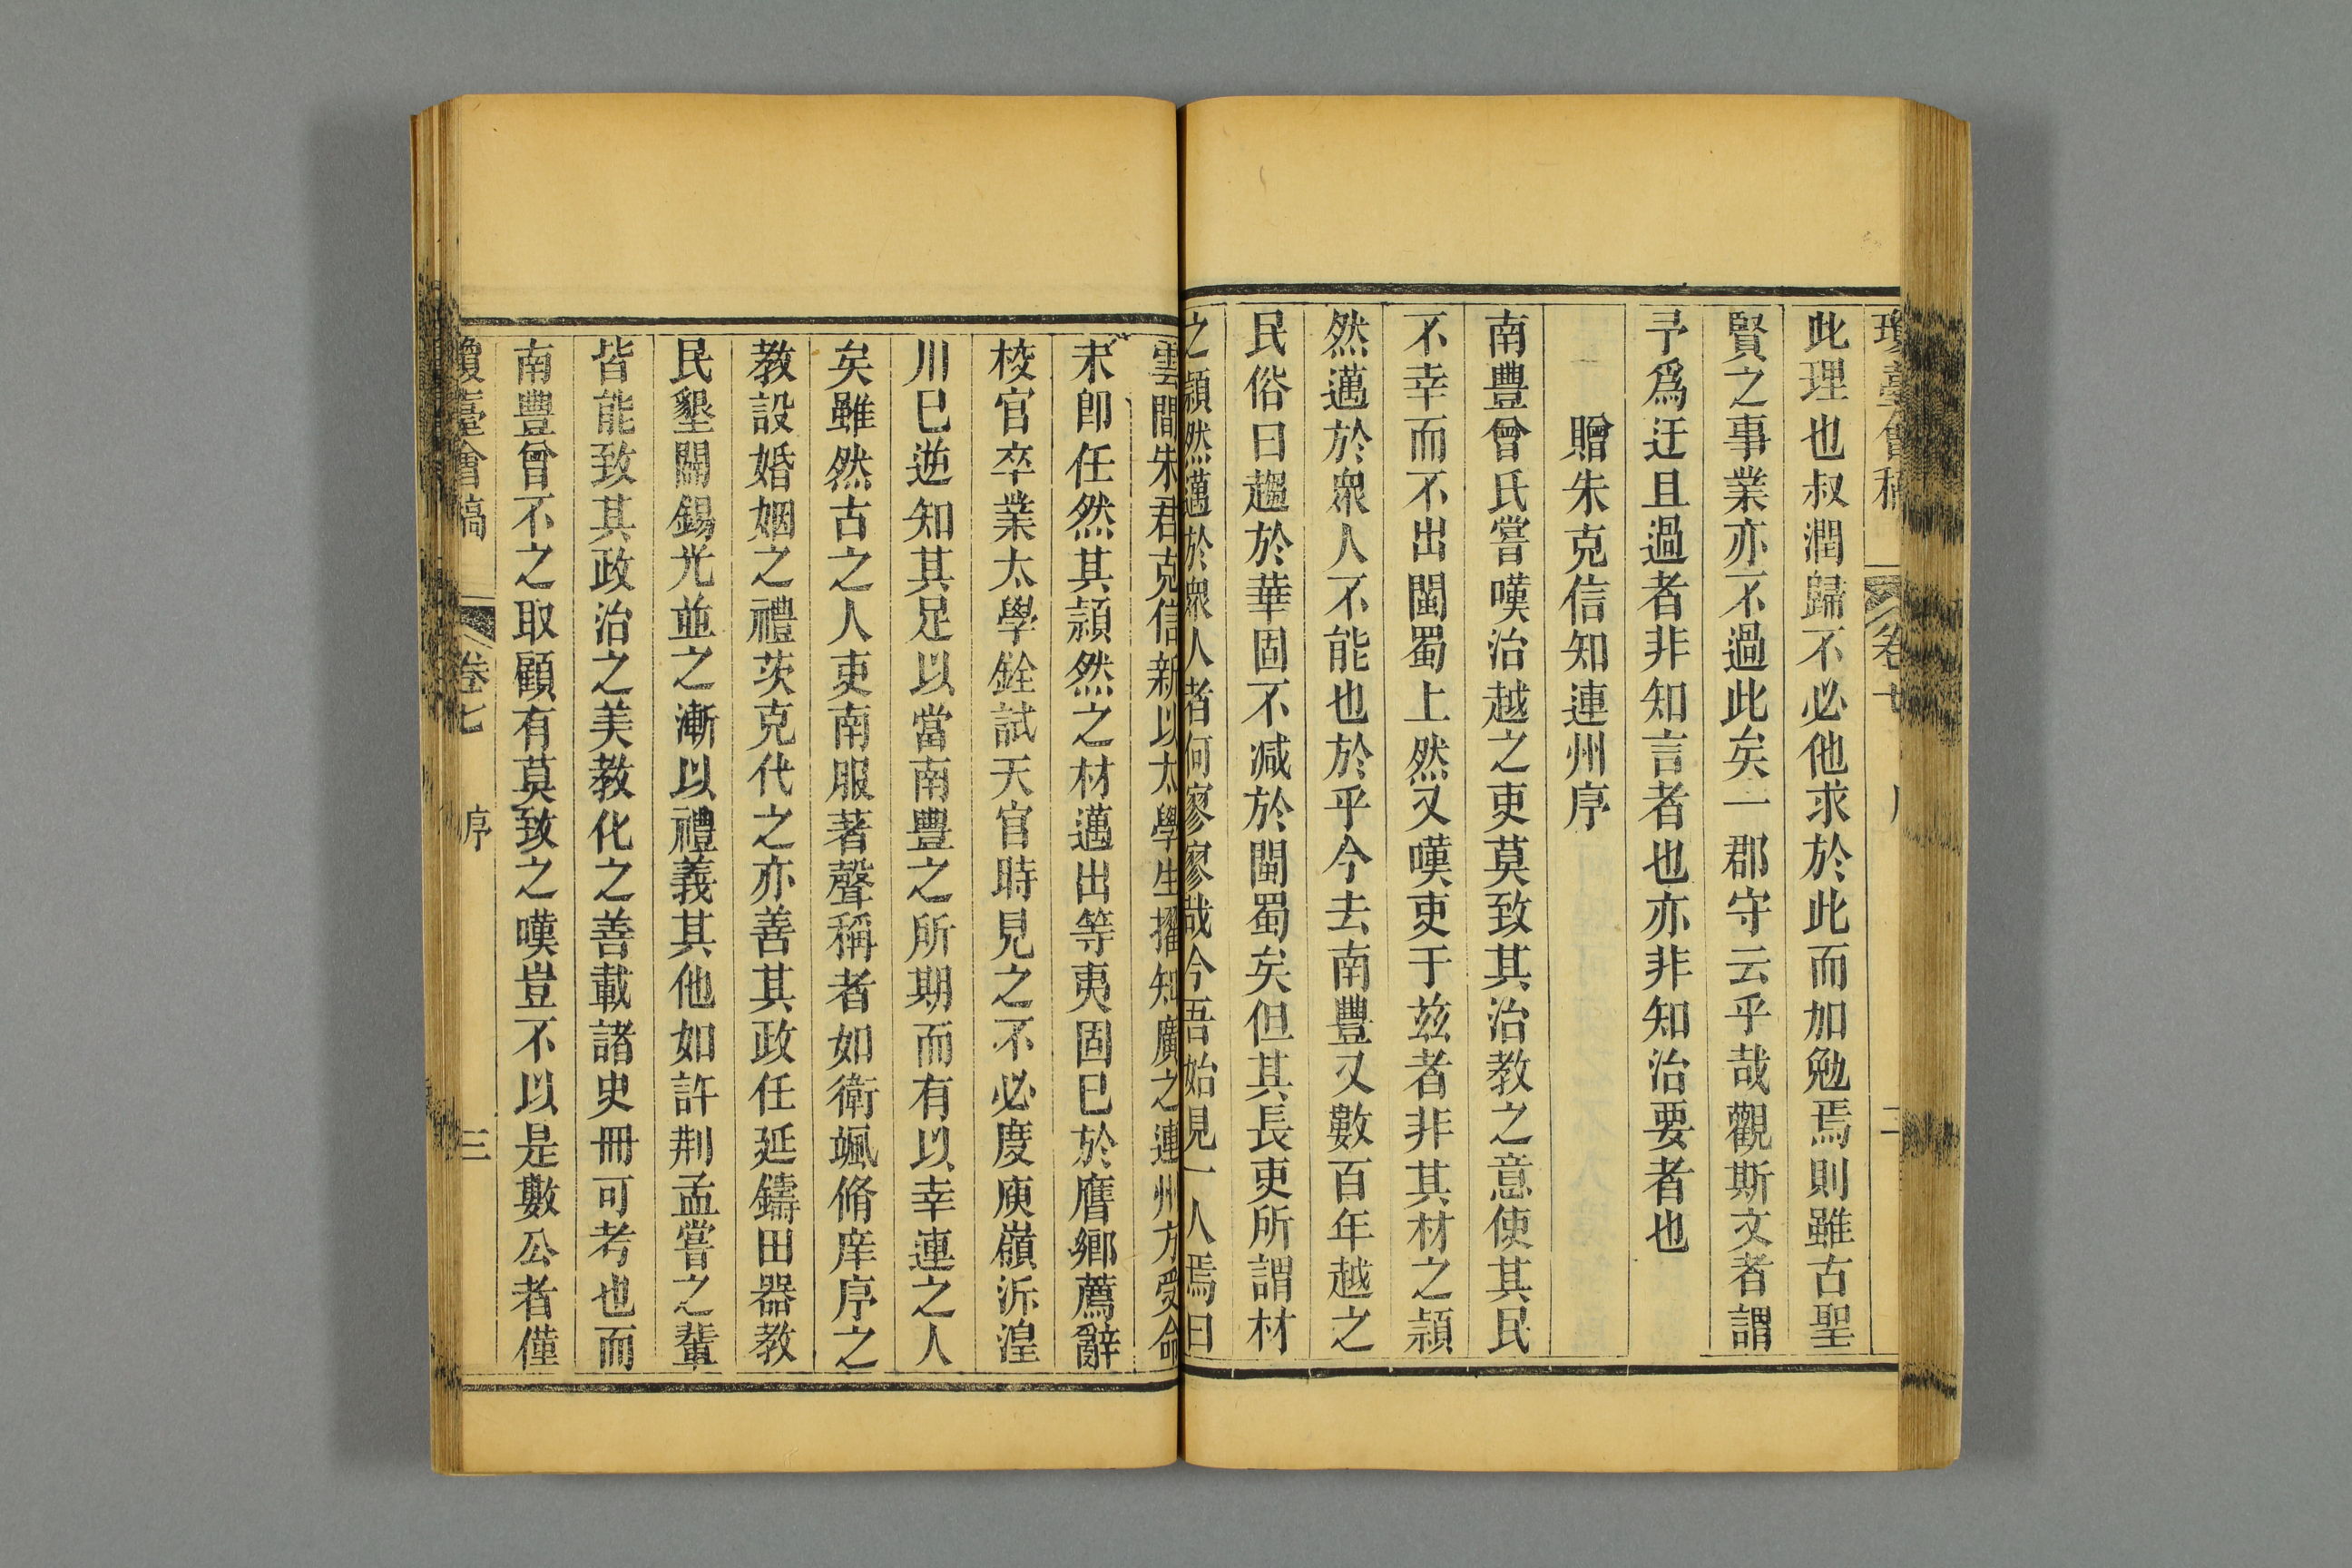 瓊臺會稿 卷七 序 二
此理也叔潤歸不必他求於此而加勉焉則雖古聖
賢之事業亦不過此矣一郡守云乎哉觀斯文者謂
予爲迂且過者非知言者也亦非知治要者也
贈朱克信知連州序
南豐曾氏嘗嘆治越之吏莫致其治教之意使其民
不幸而不出閩蜀上然又嘆吏于兹者非其材之頴
然邁於衆人不能也於乎今去南豐又數百年越之
民俗日趨於華固不减於閩蜀矣但其長吏所謂材
之頴然邁於衆人者何寥寥哉今吾始見一人焉曰
雲間朱君克信新以太學生擢知廣之連州方受命
未卽任然其頴然之材邁出等夷固已於膺鄉薦辭
校官卒業太學銓試天官時見之不必度庾嶺泝湟
川已逆知其足以當南豐之所期而有以幸連之人
矣雖然古之人吏南服著聲稱者如衛颯脩庠序之
教設婚姻之禮茨克代之亦善其政任延鑄田器教
民墾闢錫光並之漸以禮義其他如許荆孟嘗之輩
皆能致其政治之美教化之善載諸史冊可考也而
南豐曾不之取顧有莫致之嘆豈不以是數公者僅
瓊臺會稿 卷七 序 三